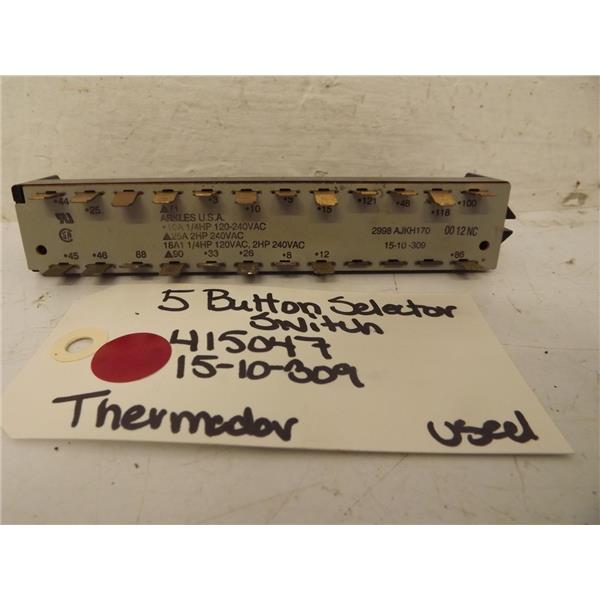 •44 •25 ▲71 •3 •10 •5 •15 •121 •48 •118 •100
ARKLES U.S.A.
•10A 1/4HP 120-240VAC
▲25A 2HP 240VAC
18A1 1/4HP 120VAC, 2HP 240VAC
2998 AJKH170 0012 NC
15-10-309
•45 •46 68 ▲90 •33 •26 •8 •12 •86
5 Button Selector
Switch
415047
15-10-309
Thermador used